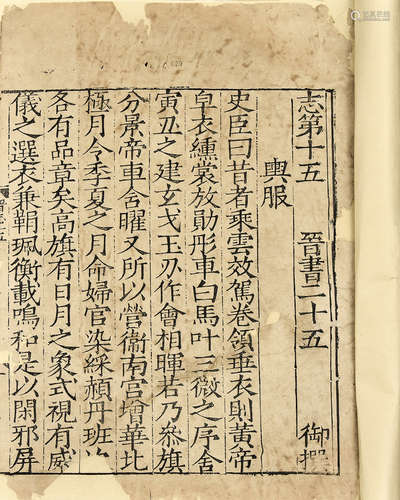 志第十五　晉書二十五　御撰
輿服
史臣曰昔者乘雲效駕卷領垂衣則黃帝
皁衣纁裳放勛彤車白馬叶三微之序舍
寅丑之建玄戈玉刃作會相暉若乃參旗
分景帝車含曜又所以營衞南宮增華北
極月令季夏之月命婦官染綵赬丹班次
各有品章矣高旗有日月之象式視有威
儀之選衣兼鞙珮衡載鳴和是以閑邪屏